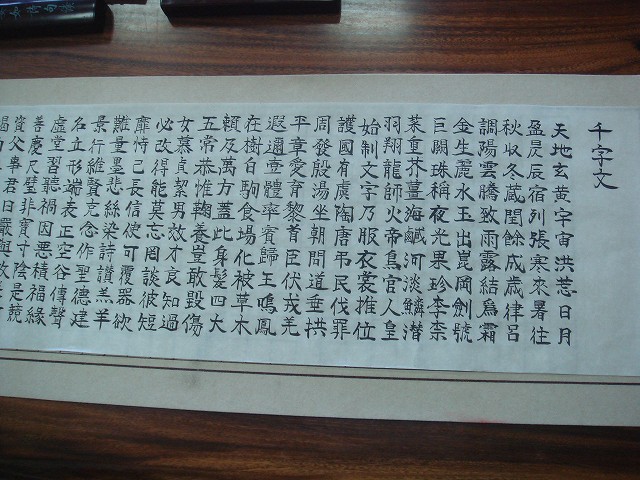 千字文
天地玄黃宇宙洪荒日月
盈昃辰宿列張寒來暑往
秋収冬蔵閏餘成歳律呂
調陽雲騰致雨露結爲霜
金生麗水玉出崑岡劍號
巨闕珠稱夜光果珍李柰
菜重芥薑海鹹河淡鱗潛
羽翔龍師火帝鳥官人皇
始制文字乃服衣裳推位
讓國有虞陶唐弔民伐罪
周發殷湯坐朝問道垂拱
平章愛育黎首臣伏戎羌
遐邇壹體率賓歸王鳴鳳
在樹白駒食場化被草木
賴及萬方蓋此身髮四大
五常恭惟鞠養豈敢毀傷
女慕貞絜男效才良知過
必改得能莫忘罔談彼短
靡恃己長信使可覆器欲
難量墨悲絲染詩讚羔羊
景行維賢克念作聖德建
名立形端表正空谷傳聲
虛堂習聽禍因惡積福緣
善慶尺璧非寶寸陰是競
資父事君曰嚴與敬